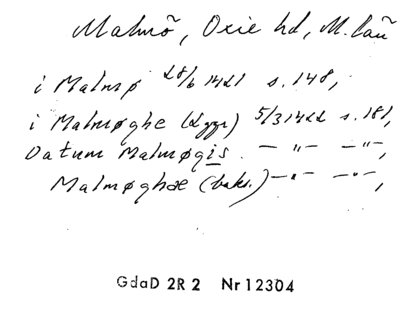 Malmö, Oxie hd, M. län
i Malmø 28/6 1421 s. 148,
i Malmøghe (2 ggr) 5/3 1422 s. 181,
Datum Malmøgis. — „ — — „ —,
Malmøghæ (baks.) — „ — — „ —,
GdaD 2R 2 Nr 12304